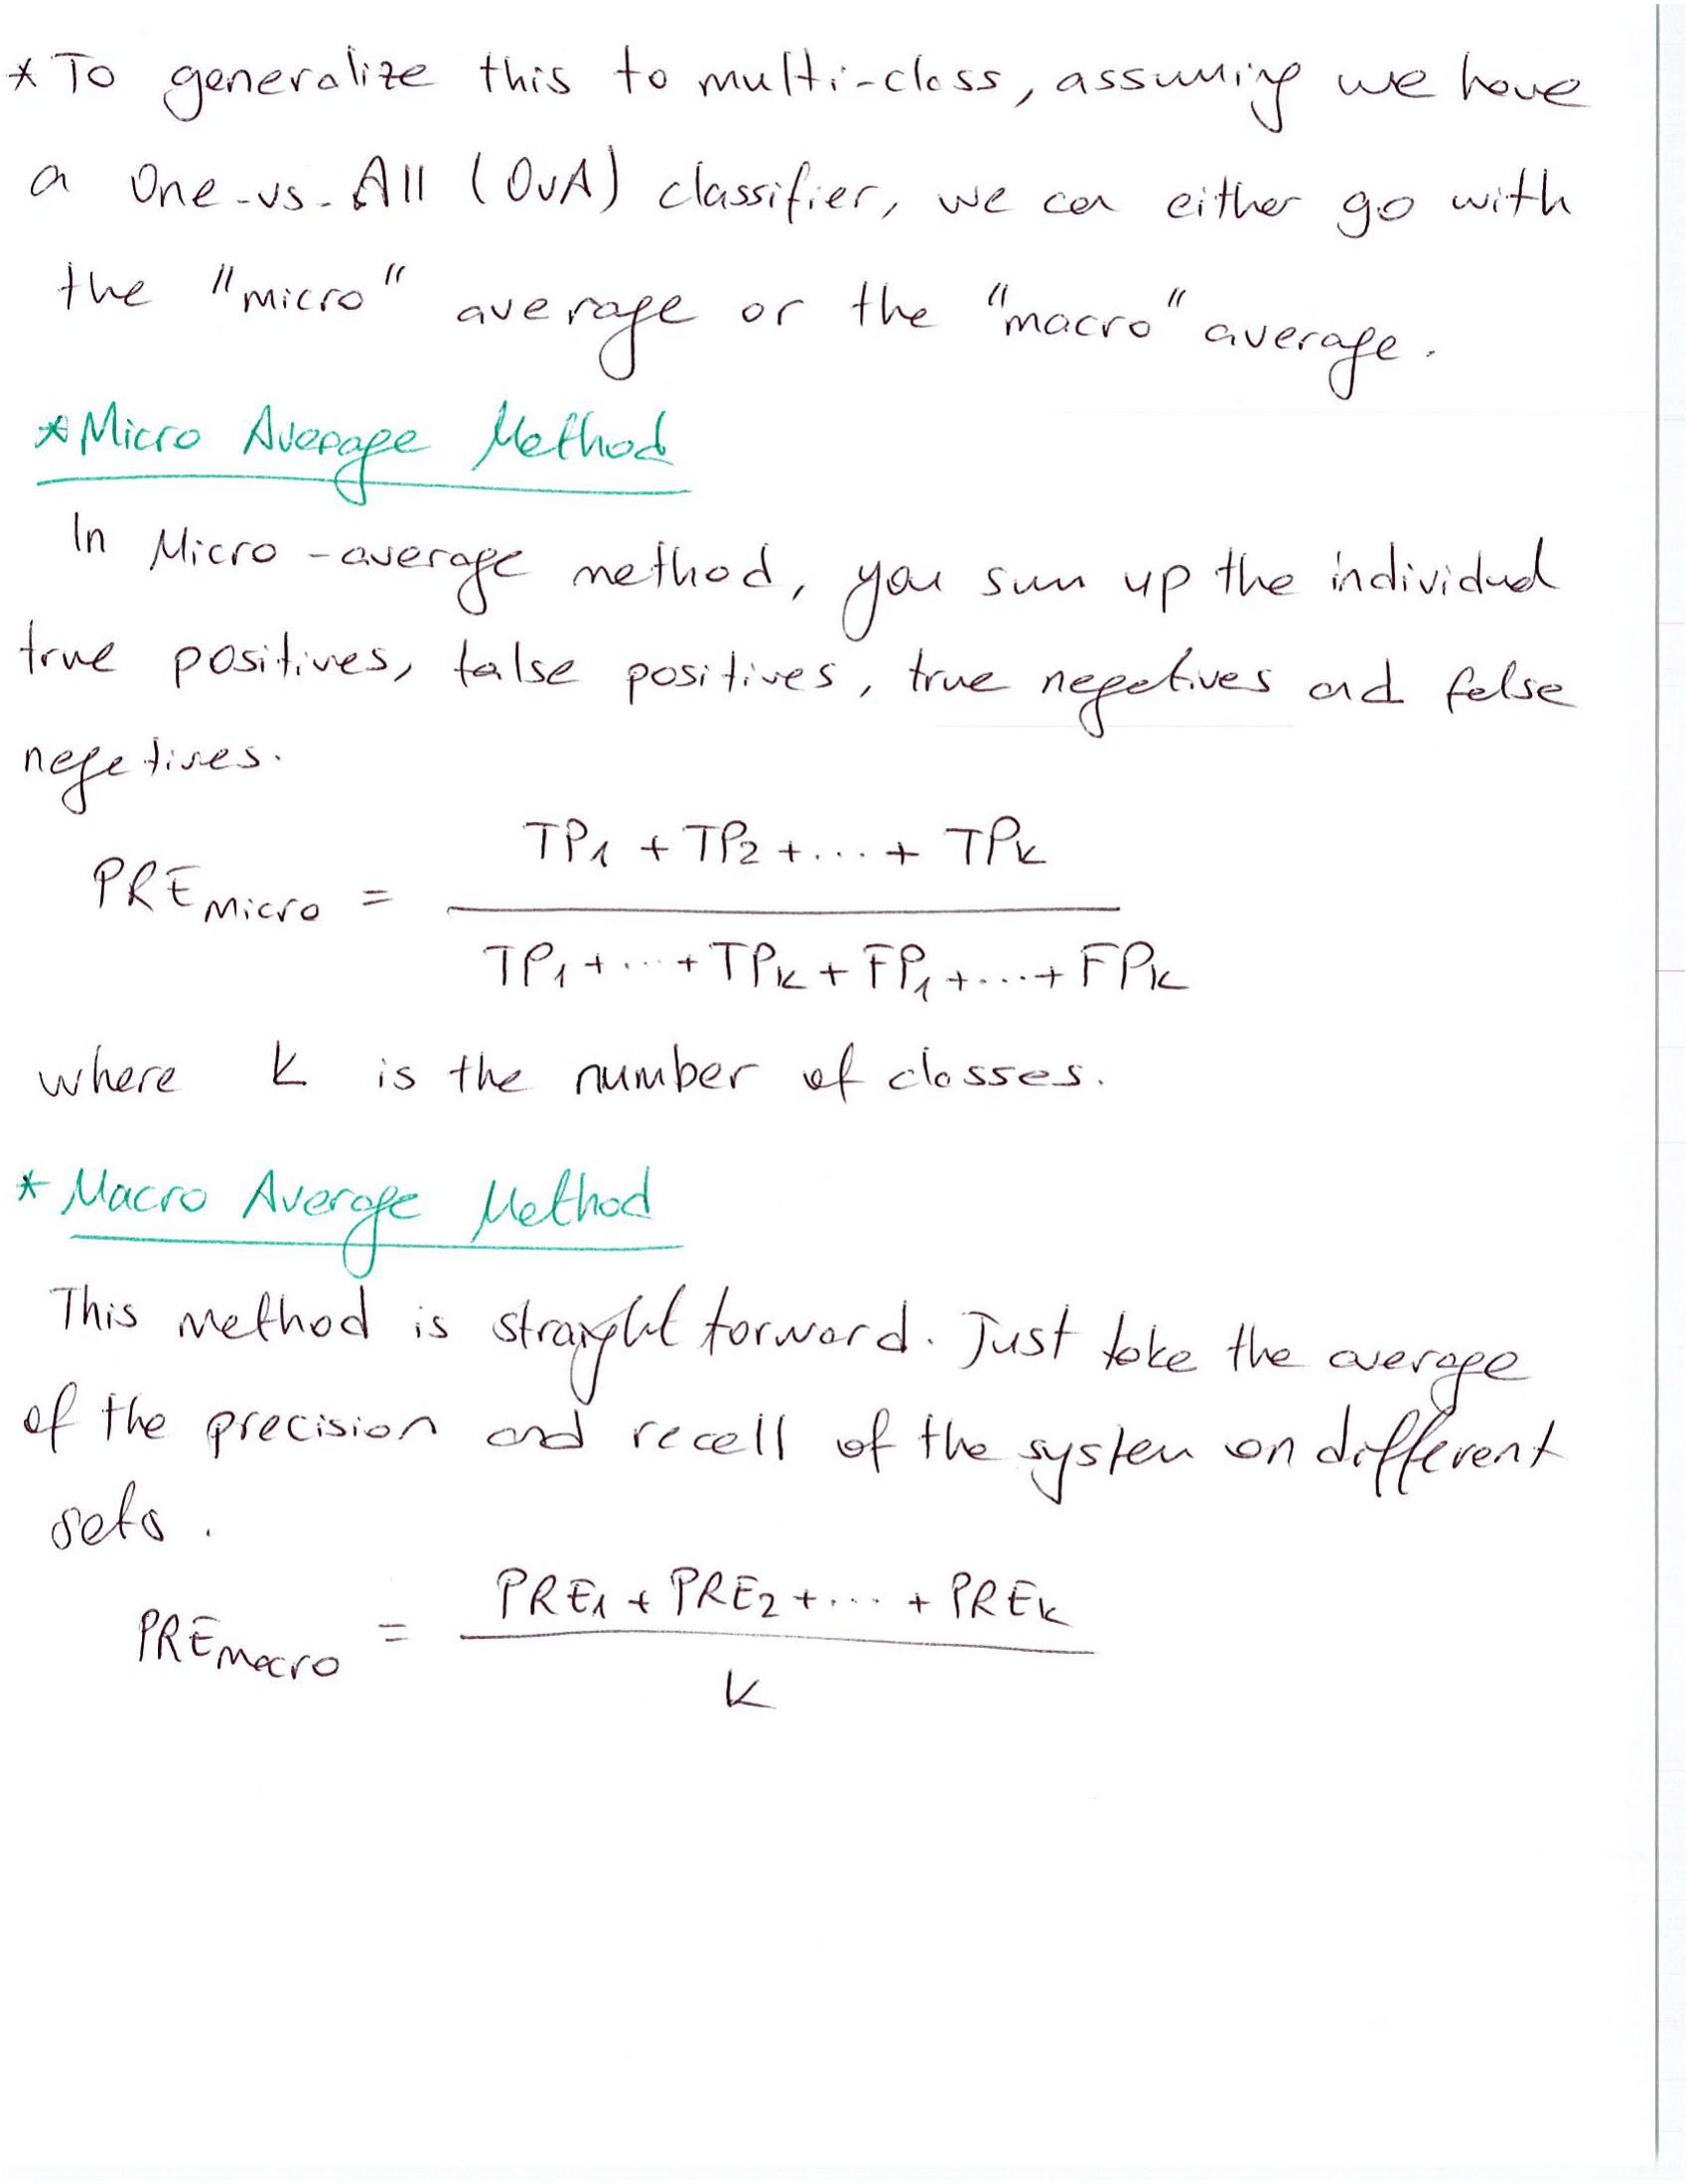 * To generalize this to multi-class, assuming we have
a One-vs-All (OvA) classifier, we can either go with
the "micro" average or the "macro" average.
* Micro Average Method
In Micro-average method, you sum up the individual
true positives, false positives, true negatives and false
negatives.
TP1 + TP2 + .... + TPk
PREMicro =
TP1 + ... + TPk + FP1 + .... + FPk
where k is the number of classes.
* Macro Average Method
This method is straight forward. Just take the average
of the precision and recall of the system on different
sets.
PRE1 + PRE2 + .... + PREk
PREmacro =
k